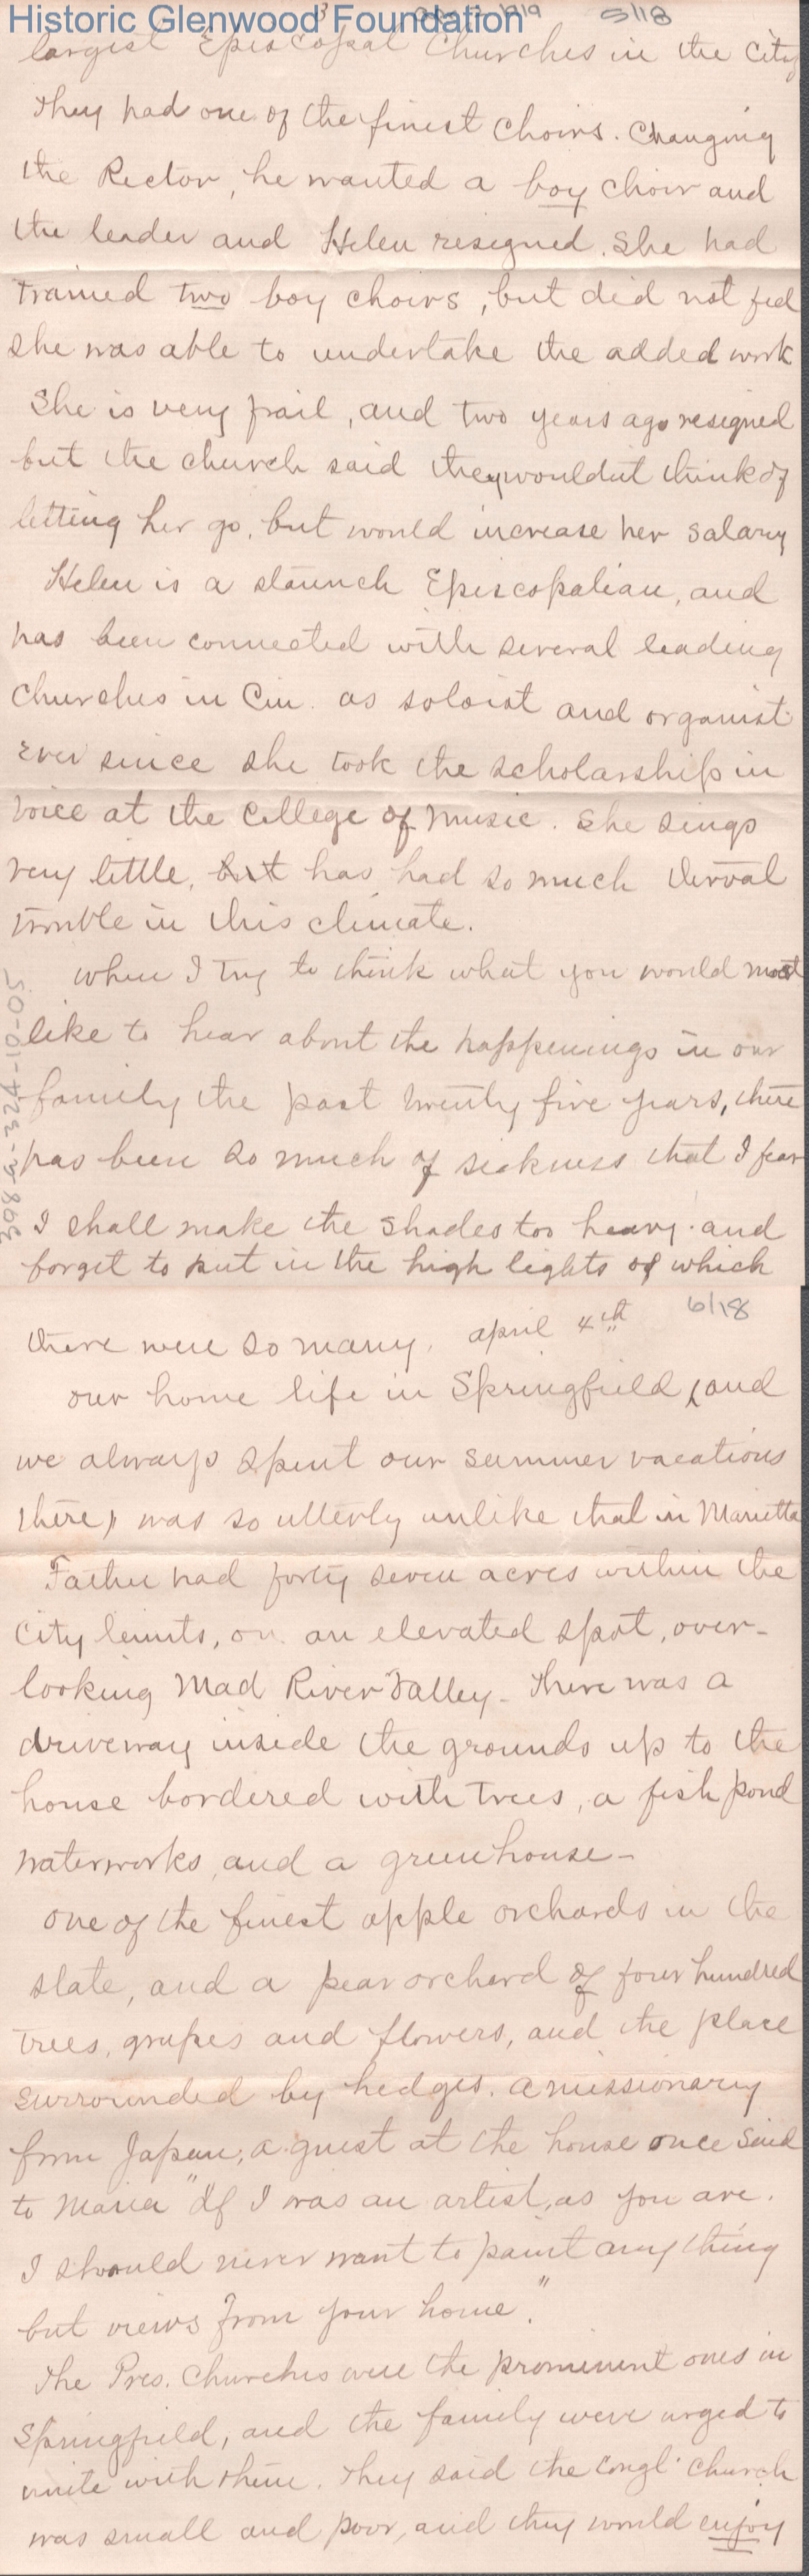 Historic Glenwood Foundation
3 1919 5/18
largest Episcopal Churches in the City
They had one of the finest choirs. Changing
the Rector, he wanted a boy choir and
the leader and Helen resigned. She had
trained two boy choirs, but did not feel
she was able to undertake the added work
She is very frail, and two years ago resigned
but the church said they wouldn't think of
letting her go, but would increase her salary
Helen is a staunch Episcopalian, and
has been connected with several leading
churches in Cin. as soloist and organist
ever since she took the scholarship in
voice at the College of Music. She sings
very little, but has had so much throat
trouble in this climate.
When I try to think what you would most
like to hear about the happenings in our
family the past twenty five years, there
has been so much of sickness that I fear
I shall make the shades too heavy and
forget to put in the high lights of which
6/18
there were so many. April 4th
Our home life in Springfield (and
we always spent our summer vacations
there) was so utterly unlike that in Marietta
Father had forty seven acres within the
City limits, on an elevated spot, over-
looking Mad River Valley - There was a
driveway inside the grounds up to the
house bordered with trees, a fish pond
waterworks, and a greenhouse -
One of the finest apple orchards in the
state, and a pear orchard of four hundred
trees, grapes and flowers, and the place
surrounded by hedges. A missionary
from Japan, a guest at the house once said
to Maria "If I was an artist, as you are.
I should never want to paint any thing
but views from your home."
The Pres. Churches were the prominent ones in
Springfield, and the family were urged to
unite with them. They said the Congl. Church
was small and poor, and they would enjoy